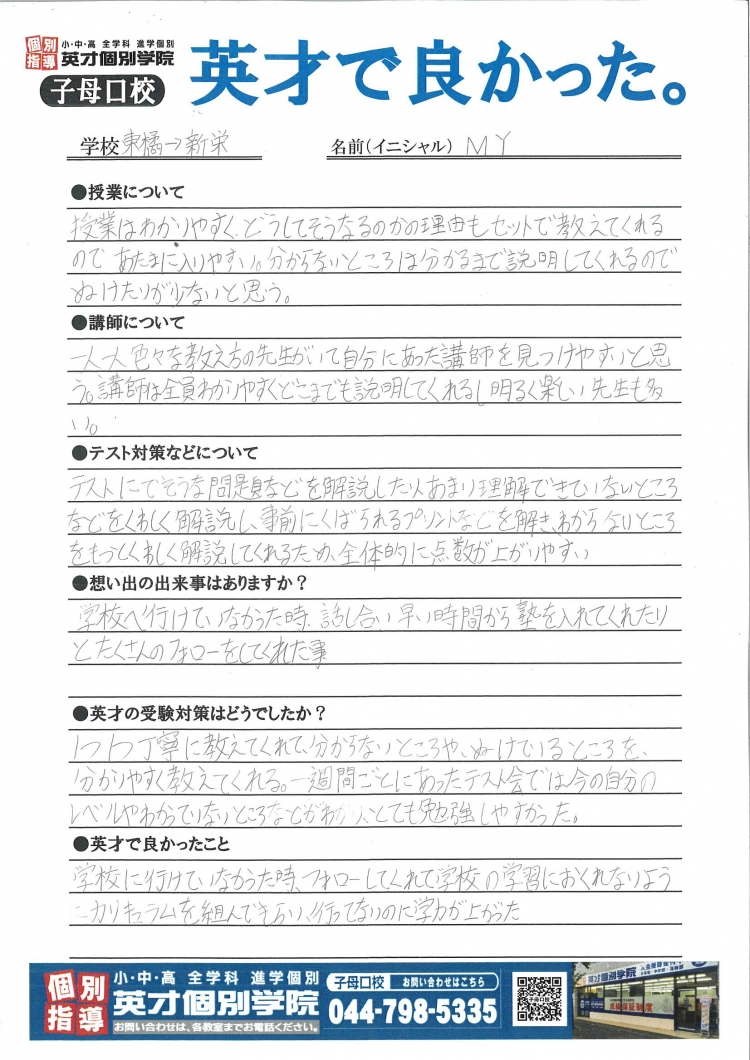 個別指導
小・中・高 全学科 進学個別
英才個別学院
子母口校
英才で良かった。
学校 東橘→新栄
名前(イニシャル) MY
●授業について
授業はわかりやすく、どうしてそうなるのかの理由もセットで教えてくれる
ので あたまに入りやすい。分からないところは分かるまで説明してくれるので
ぬけたりが少ないと思う。
●講師について
一人一人色々な教え方の先生がいて自分にあった講師を見つけやすいと思
う。講師は全員わかりやすくどこまでも説明してくれるし明るく楽しい先生も多
い。
●テスト対策などについて
テストにでそうな問題などを解説したり、あまり理解できていないところ
などをくわしく解説し、事前にくばられるプリントなどを解き、わからないところ
をもっとくわしく解説してくれるため、全体的に点数が上がりやすい
●想い出の出来事はありますか？
学校へ行けていなかった時、話し合い早い時間から塾を入れてくれたり
とたくさんのフォローをしてくれた事
●英才の受験対策はどうでしたか？
1つ1つ丁寧に教えてくれて、分からないところや、ぬけているところを、
分かりやすく教えてくれる。一週間ごとにあったテスト会では今の自分の
レベルやわかっていないところなどがわかり、とても勉強しやすかった。
●英才で良かったこと
学校に行けていなかった時、フォローしてくれて学校の学習におくれないよう
にカリキュラムを組んでもらい、行ってないのに学力が上がった
個別指導
小・中・高 全学科 進学個別
英才個別学院
お問い合わせは、各教室までお電話ください。
子母口校 お問い合わせはこちら
044-798-5335
子母口校
英才個別学院
成績保証制度